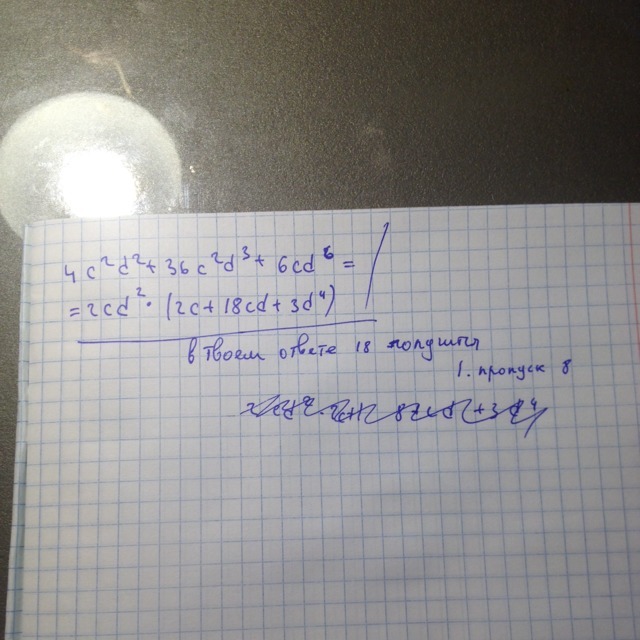 4c²d² + 36c²d³ + 6cd⁶ =
= 2cd² · (2c + 18cd + 3d⁴)
в твоем ответе 18
1. пропуск 8